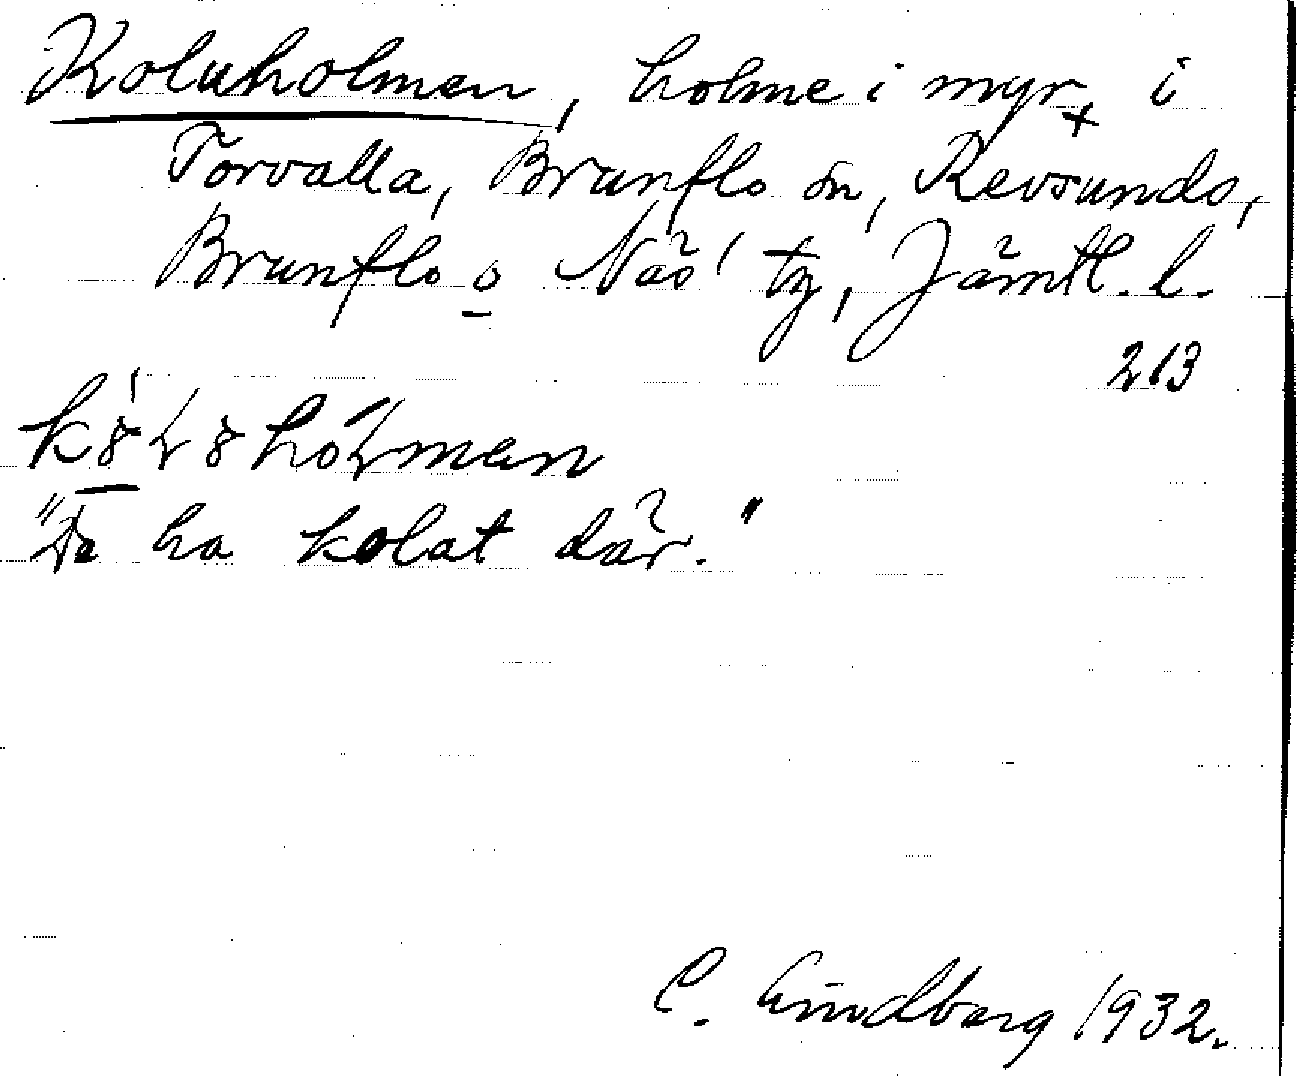 Koluholmen, holme i myr, i
Torvalla, Brunflo sn, Revsunds,
Brunflo o Näs' tg, Jämtl. l.
213
"De ha kolat där."
C. Lindberg 1932.